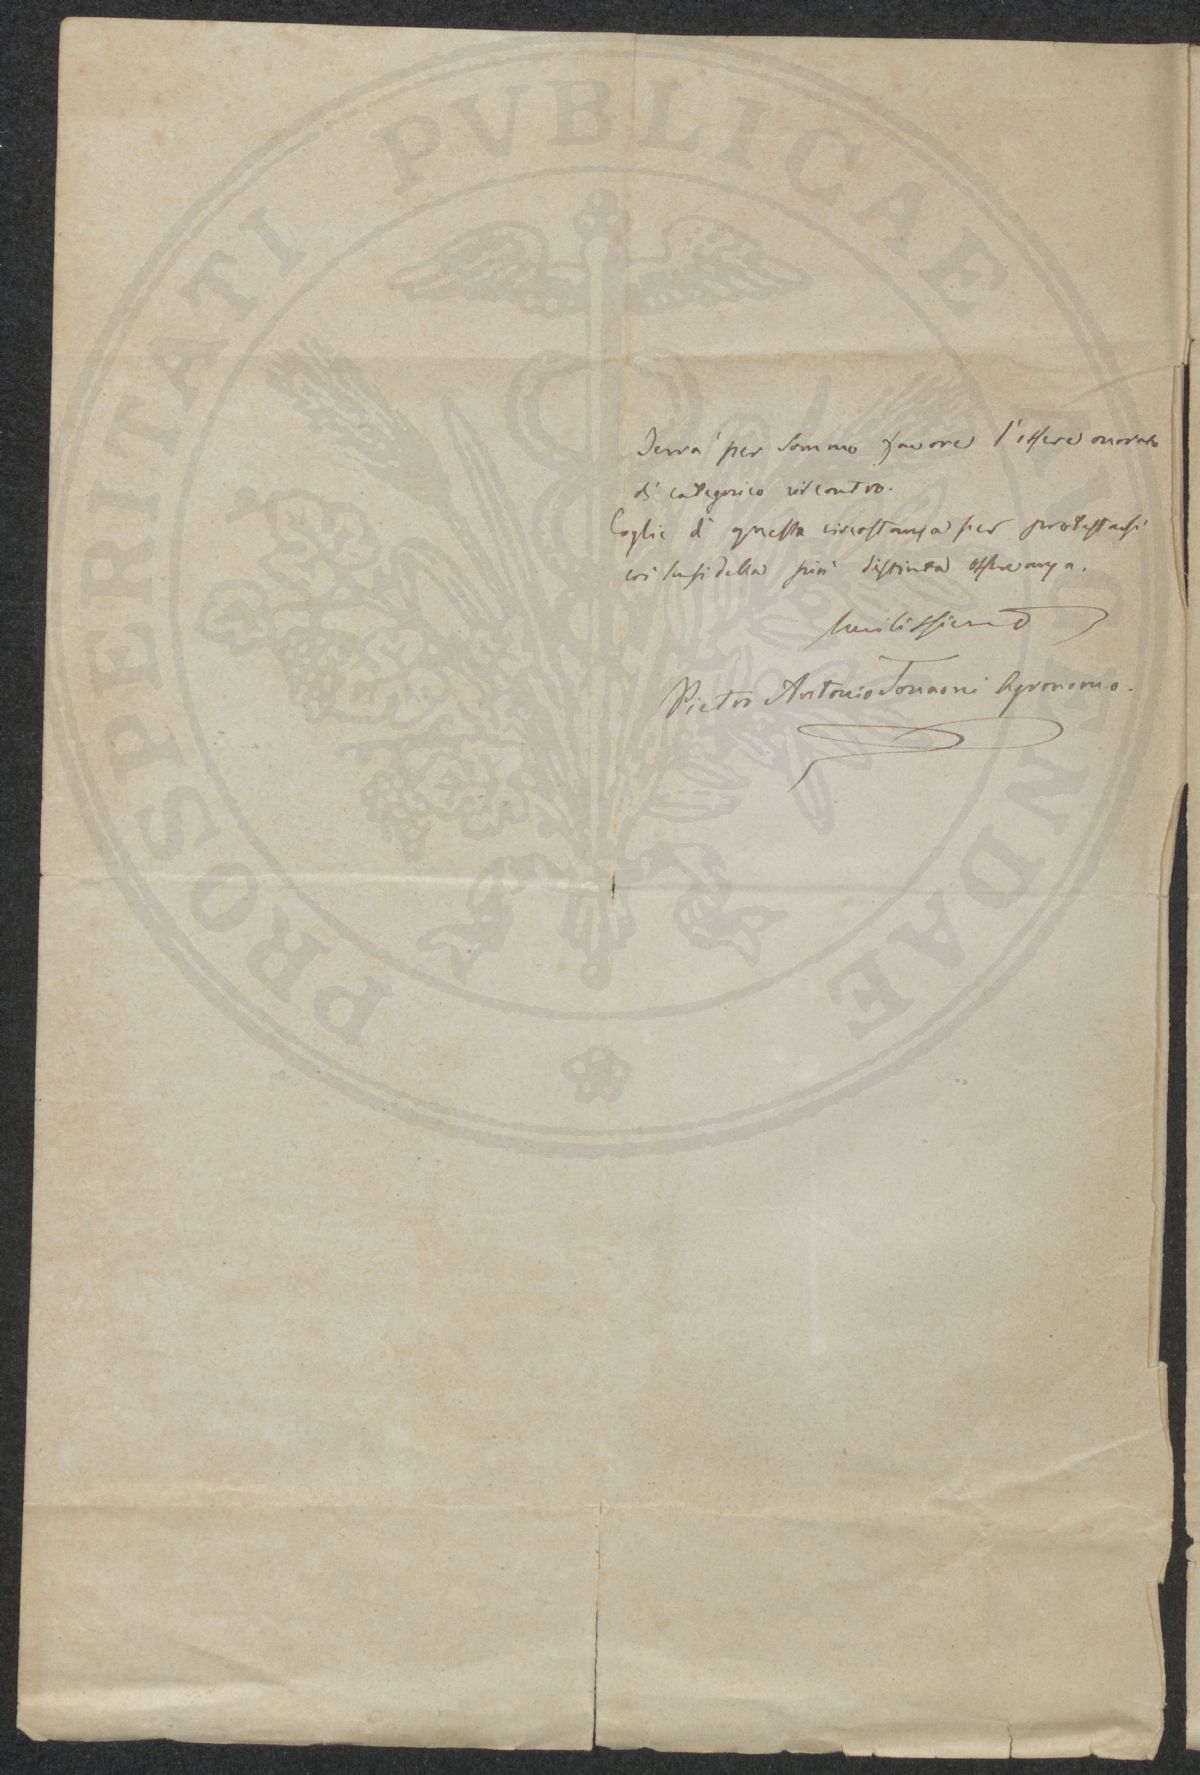 PROSPERITATI PVBLICAE AVGENDAE
Terrà per sommo favore l'essere onorato
di categorico riscontro.
Coglie di questa circostanza per protestarsi
coi sensi della più distinta osservanza.
Umilissimo
Pietro Antonio Agronomo.